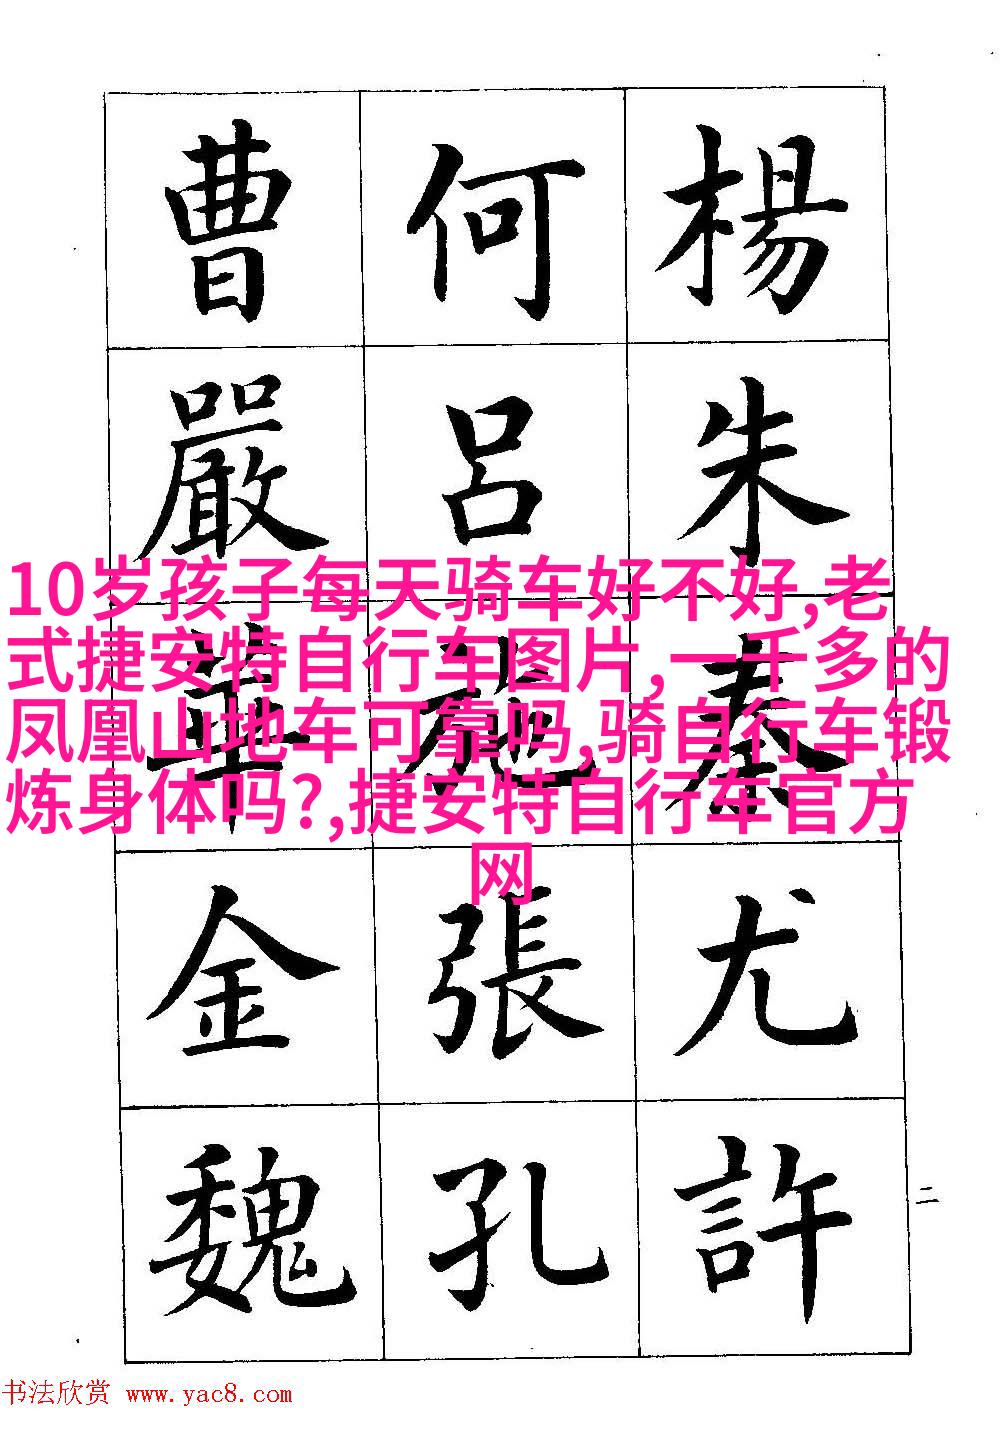 楊朱秦尤許
何呂施張孔
曹嚴華金魏
二
10岁孩子每天骑车好不好,老
式捷安特自行车图片,一千多的
凤凰山地车可靠吗,骑自行车锻
炼身体吗?,捷安特自行车官方
网
书法欣赏 www.yac8.com